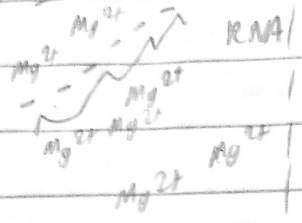 Mg²⁺ RNA
Mg²⁺
Mg²⁺
Mg²⁺
Mg²⁺ Mg²⁺
Mg²⁺